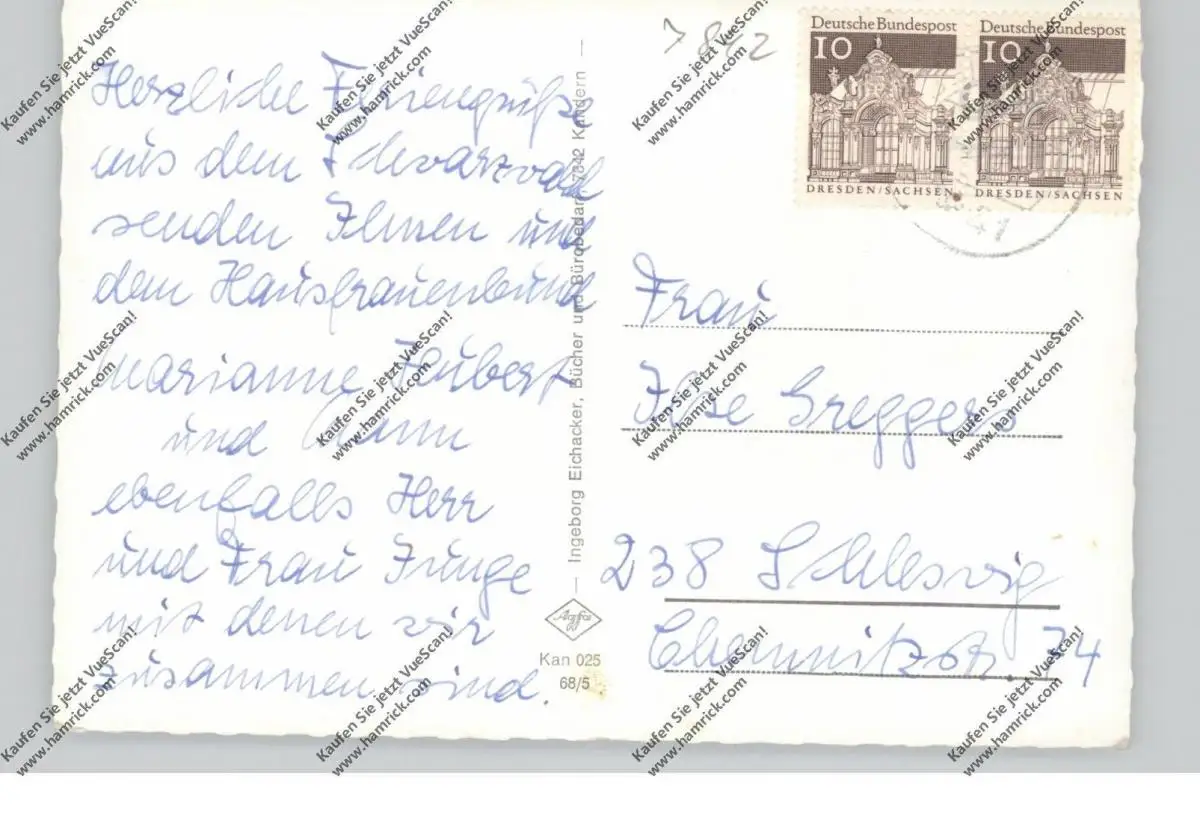 Herzliche Feriengrüße
aus dem Schwarzwald
senden Ihnen und
dem Hausfrauenbund
Marianne
und Mann
ebenfalls Herr
und Frau Junge
mit denen wir
zusammen sind.
Ingeborg Eichacker, Bücher und Bürobedarf, 7842 Kandern
Agfa
Kan 025
68/5
7842
Deutsche Bundespost
10
DRESDEN/SACHSEN
Deutsche Bundespost
10
DRESDEN/SACHSEN
Frau
Ilse Greggers
238 Schleswig
Chemnitzstr. 74
Kaufen Sie jetzt VueScan!
www.hamrick.com